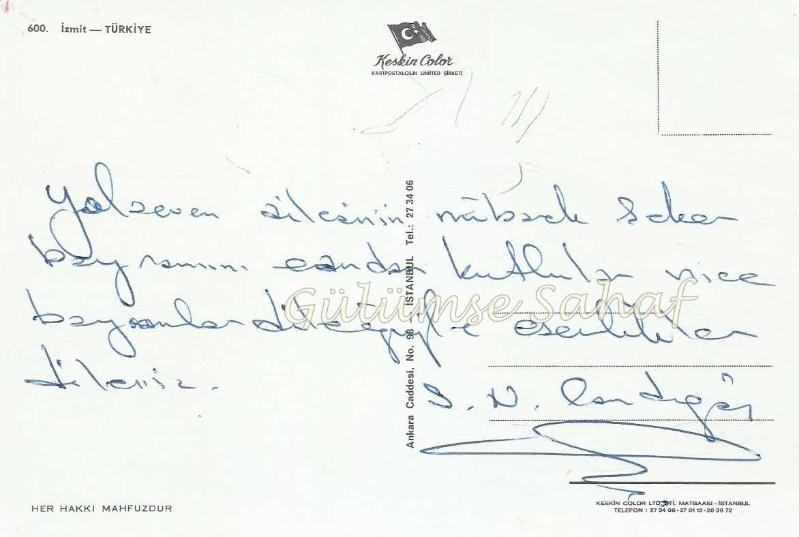 600. İzmit — TÜRKİYE
Keskin Color
KARTPOSTALCILIK LIMITED ŞİRKETİ
ailesinin mübarek şeker
bayramını candan kutlular nice
bayramlar dileğiyle esenlikler
dileriz.
S. N.
Gülümse Sahaf
Ankara Caddesi, No. 98 — İSTANBUL Tel.: 27 34 06
HER HAKKI MAHFUZDUR
KESKİN COLOR LTD. ŞTİ. MATBAASI - İSTANBUL
TELEFON : 27 34 06 - 27 01 13 - 28 39 72